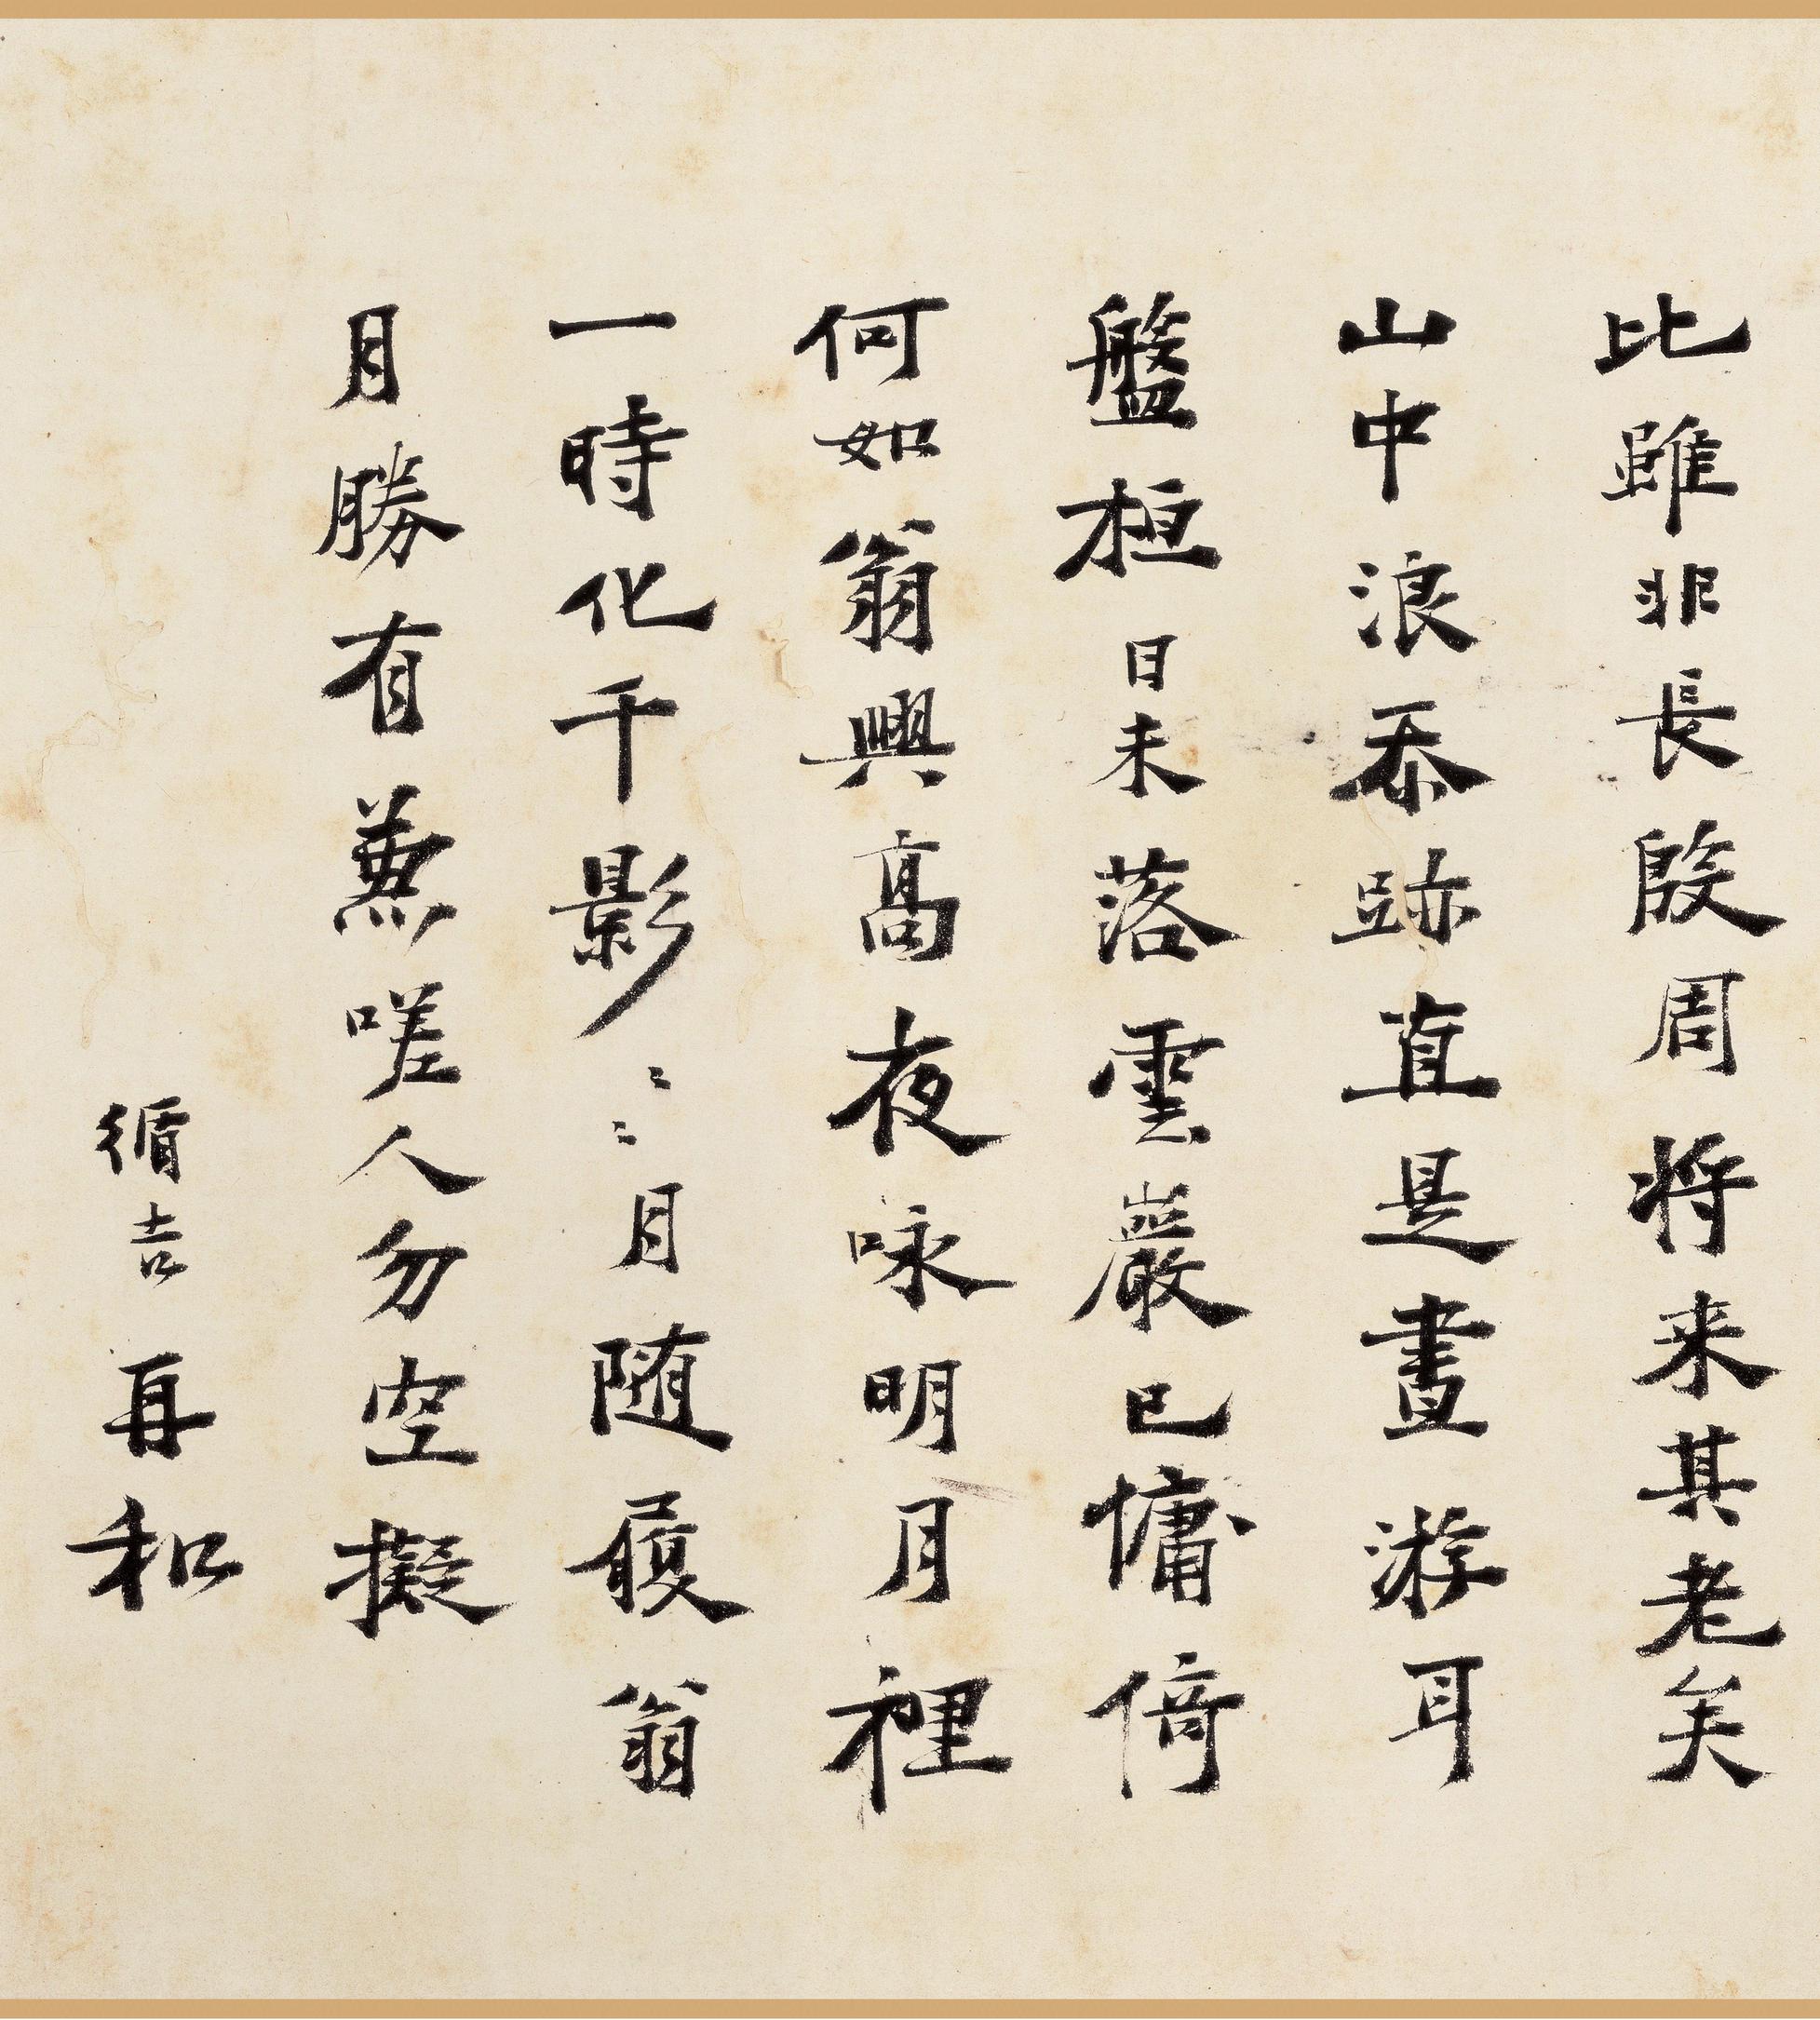 比雖非長殷周將来其老矣
山中浪忝跡直是晝游耳
盤桓日未落雲巖已慵倚
何如翁興高夜咏明月裡
一時化千影〻〻月随履翁
月勝有兼嗟人勿空擬
循吉再和